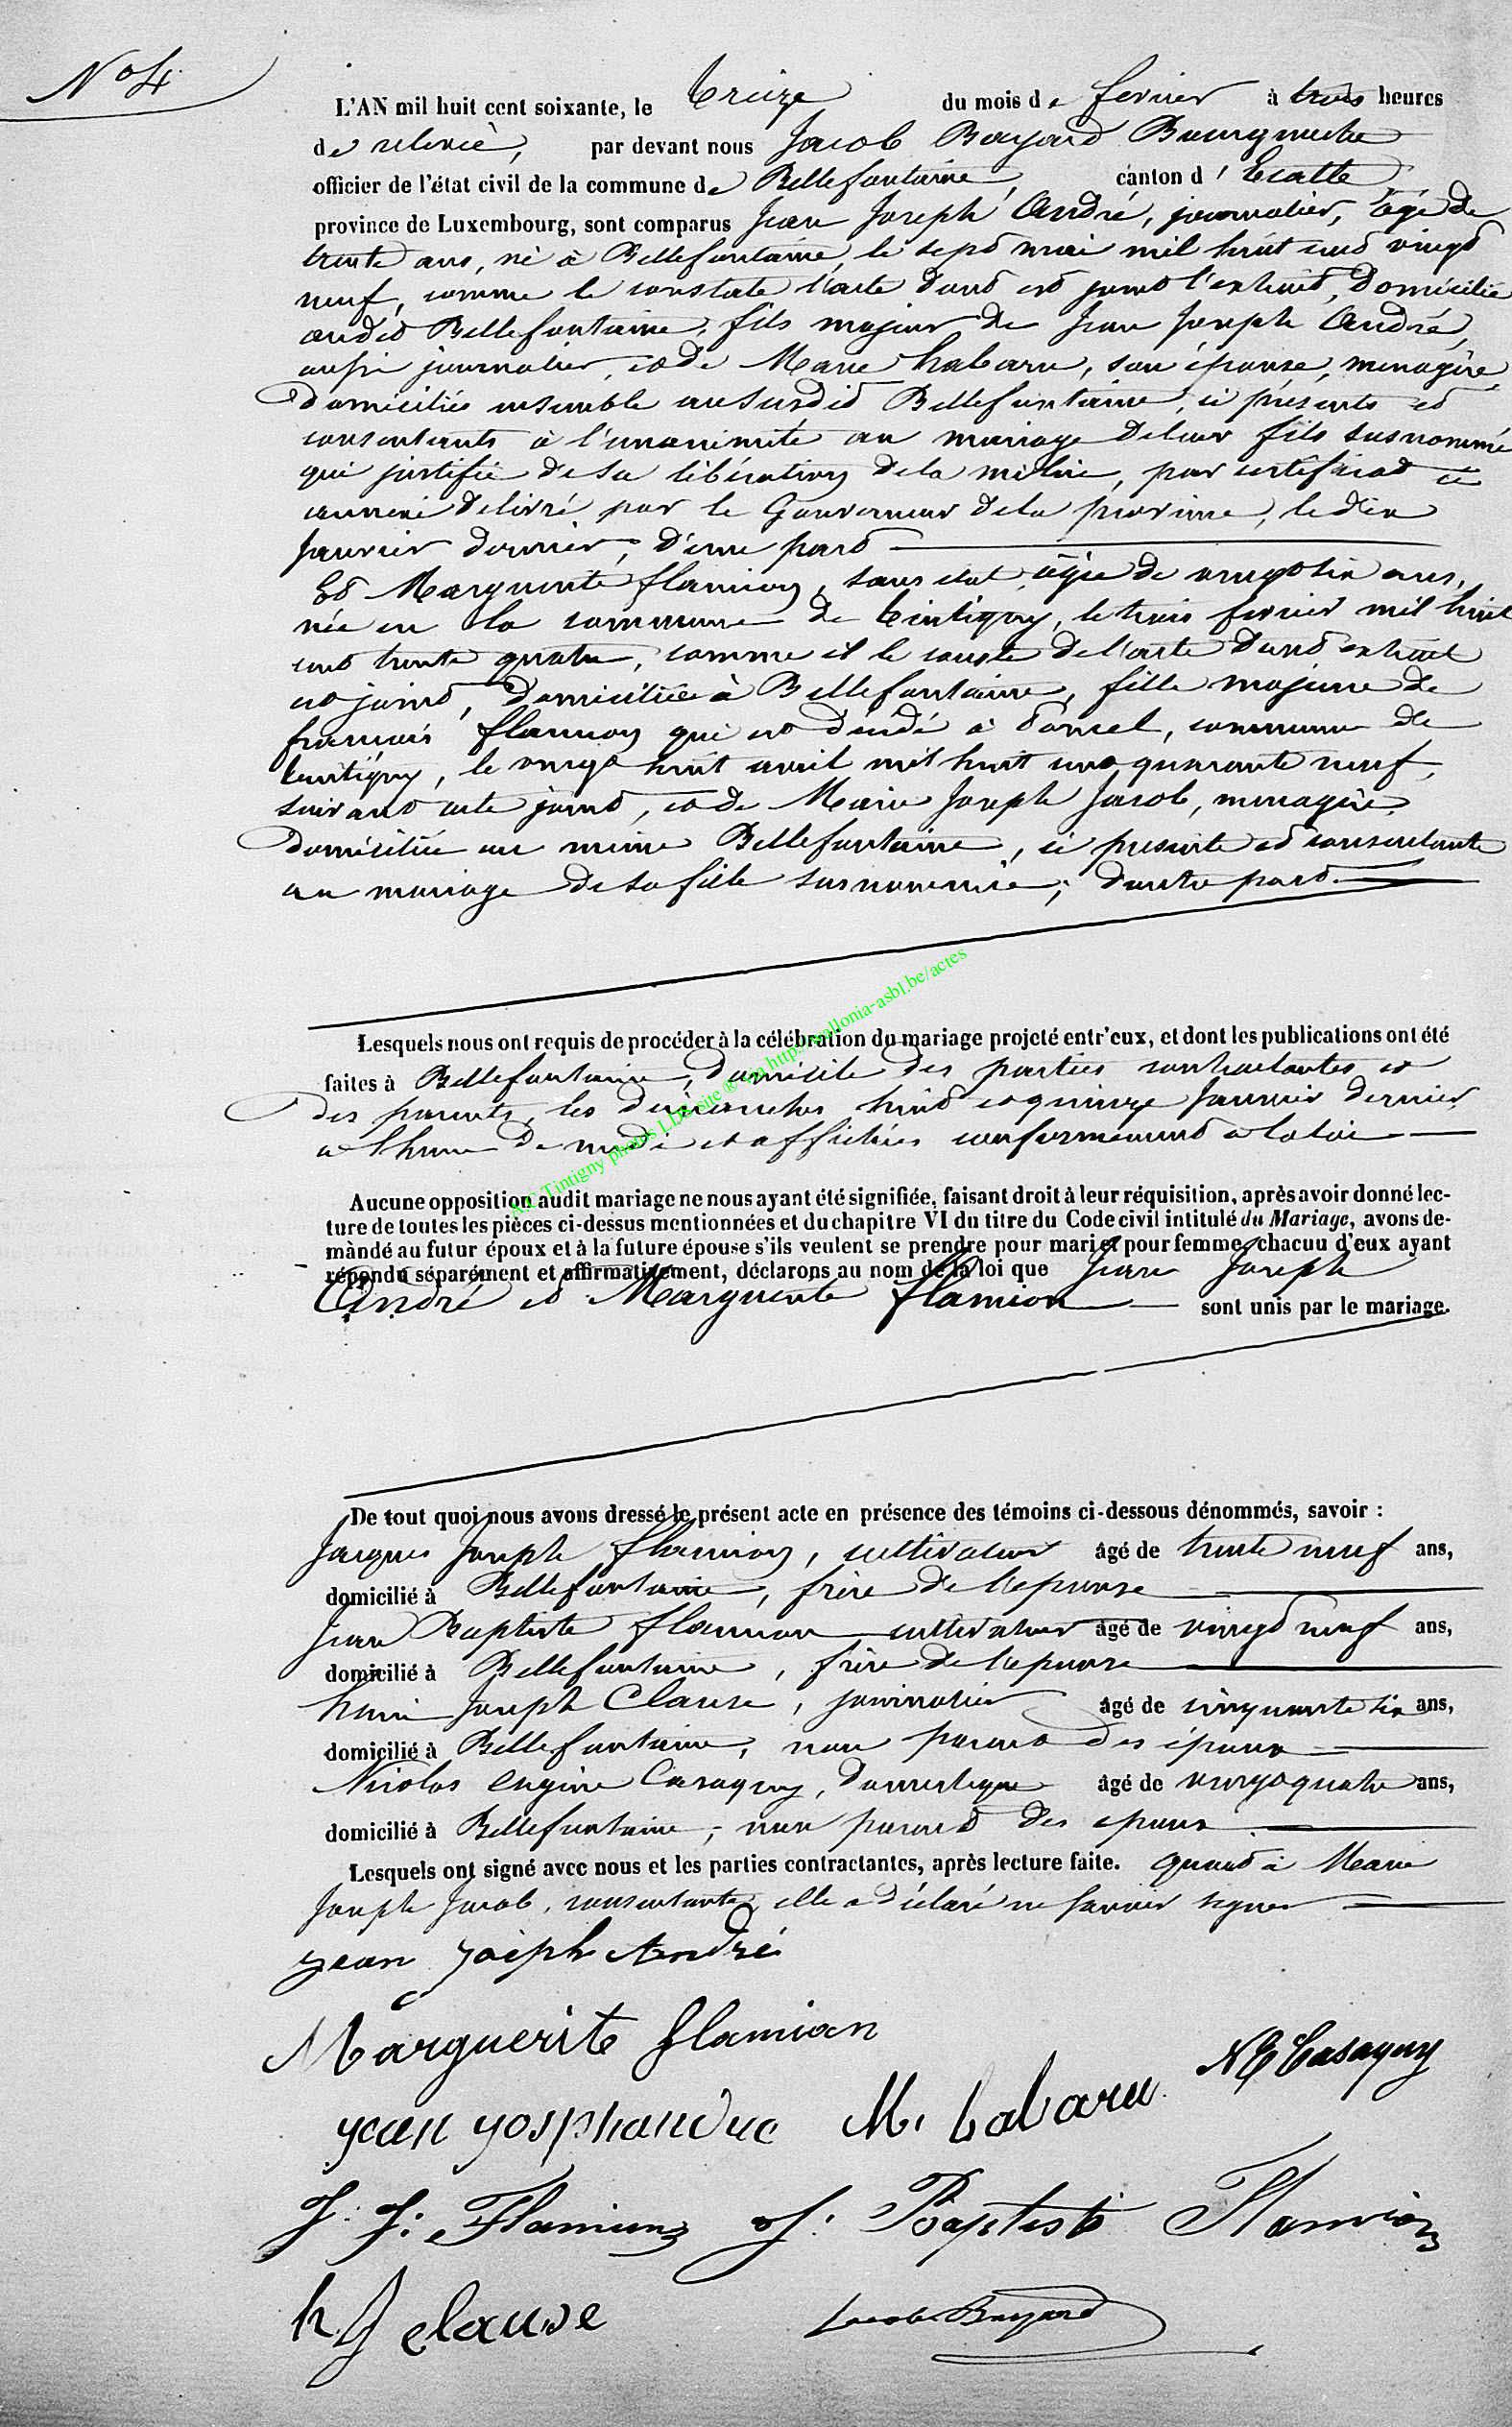 N° 4
L'AN mil huit cent soixante, le treize du mois de fevrier à trois heures
de relevée, par devant nous Jacob Bayard Bourgmestre
officier de l'état civil de la commune de Bellefontaine, canton d'Etalle
province de Luxembourg, sont comparus Jean Joseph André, journalier, âgé de
trente ans, né à Bellefontaine, le sept mai mil huit cent vingt
neuf, comme le constate l'acte dont est joint l'extrait, domicilié
audit Bellefontaine, fils majeur de Jean Joseph André,
aussi journalier, et de Marie habaru, son épouse, menagère
domiciliés ensemble au susdit Bellefontaine, ci présents et
consentants à l'unanimité au mariage de leur fils susnommé
qui justifie de sa libération de la milice, par certificat ci
annexé delivré par le Gouverneur de la province, le dix
Janvier dernier; d'une part
Et Marguerite flamion, sans etat, agée de vingt six ans,
née en la commune de tintigny, le trois fevrier mil huit
cent trente quatre, comme il le conste de l'acte dont extrait
est joint, domiciliée à Bellefontaine, fille majeure de
françois flamion qui est décédé à Lancel, commune de
tintigny, le vingt huit avril mil huit cent quarante neuf,
suivant acte joint, et de Marie Joseph Jacob, menagère,
domiciliée au même Bellefontaine, ci presente et consentante
au mariage de sa fille susnommée; d'autre part.
Lesquels nous ont requis de procéder à la célébration du mariage projeté entr'eux, et dont les publications ont été
faites à Bellefontaine, domicile des parties contractantes et
des parents, les dimanches huit et quinze Janvier dernier
a l'heure de midi et affichées conformement a la loi
Aucune opposition audit mariage ne nous ayant été signifiée, faisant droit à leur réquisition, après avoir donné lec-
ture de toutes les pièces ci-dessus mentionnées et du chapitre VI du titre du Code civil intitulé du Mariage, avons de-
mandé au futur époux et à la future épouse s'ils veulent se prendre pour mari et pour femme, chacuu d'eux ayant
répondu séparément et affirmativement, déclarons au nom de la loi que Jean Joseph
André et Marguerite flamion sont unis par le mariage.
De tout quoi nous avons dressé le présent acte en présence des témoins ci-dessous dénommés, savoir :
Jacques Joseph flamion, cultivateur âgé de trente neuf ans,
domicilié à Bellefontaine, frère de l'epouse
Jean Baptiste flamion cultivateur âgé de vingt neuf ans,
domicilié à Bellefontaine, frère de l'epouse
henri Joseph Clause, journalier âgé de cinquante six ans,
domicilié à Bellefontaine, non parent des époux
Nicolas Eugène Casagny, domestique âgé de vingt quatre ans,
domicilié à Bellefontaine, non parent des epoux.
Lesquels ont signé avec nous et les parties contractantes, après lecture faite. quant à Marie
Joseph Jacob, consentante, elle a déclaré ne savoir signer
jean joseph André
Marguerite flamion
NE Casagny
jean yosphandre M. habaru
J. J: Flamion J: Baptiste Flamion
h J clause Jacob Bayard
A.C. Tintigny photos L.D. site ® via http://wallonia-asbl.be/actes